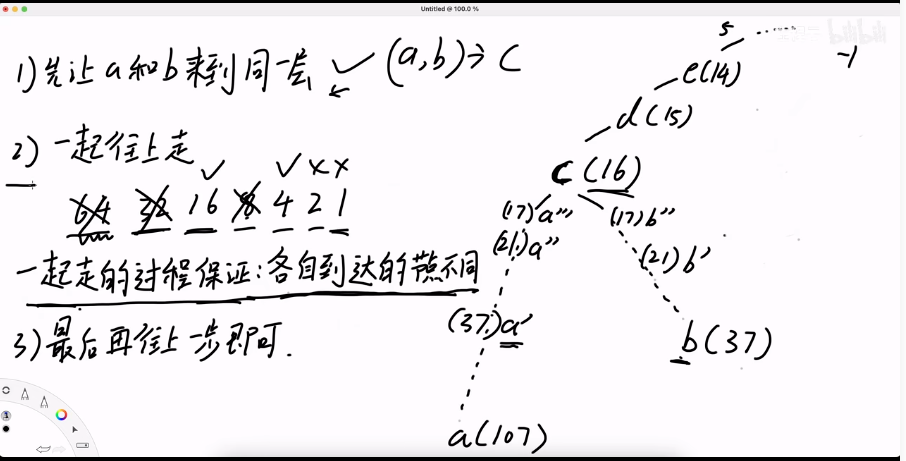 Untitled @ 100.0 %
1) 先让a和b来到同一层 ✓ (a,b)→C
2) 一起往上走
64 32 16 8 4 2 1
一起走的过程保证:各自到达的节点不同
3) 最后再往上一步即可.
5 ......
-1
e(14)
d(15)
C(16)
(17)a''' (17)b''
(21)a'' (21)b'
(37)a' b(37)
a(107)